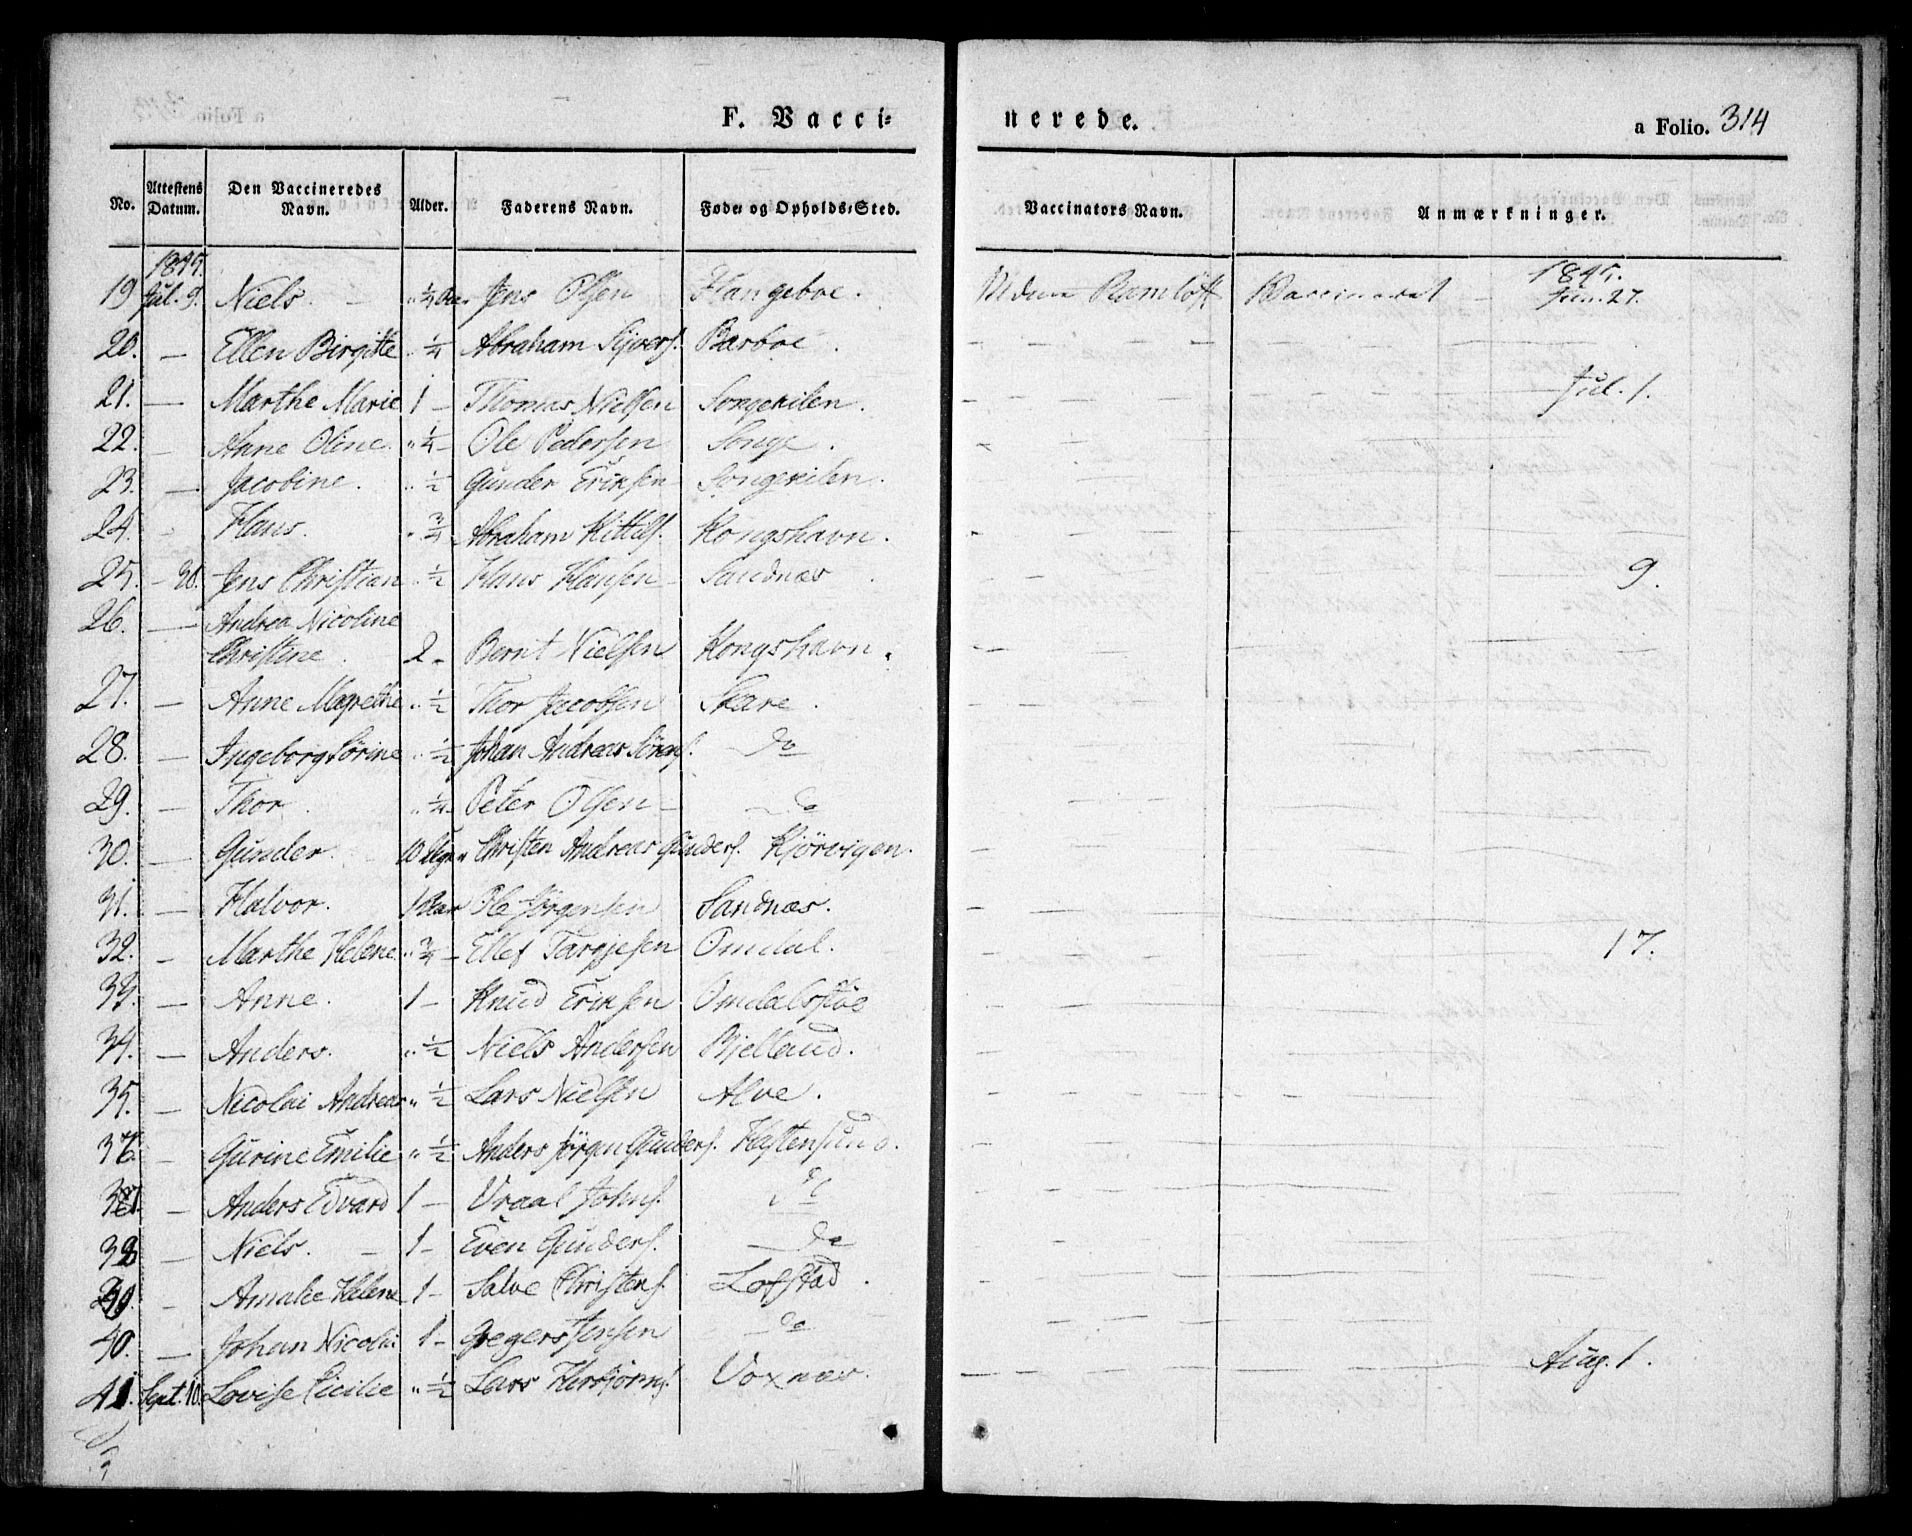 F. Vacci-
nerede.
a Folio. 314
No. Attestens Datum. Den Vaccineredes Navn. Alder. Faderens Navn. Føde- og Opholds-Sted. Vaccinators Navn. Anmærkninger.
1845. 1845.
19 Jul. 9. Niels. – " ¼ Aar Jens Olsen Hangeboe. Ramløff Vaccineret – Jun. 27.
20. — Ellen Birgitte " ¼ Abraham Barboe.
21. — Marthe Marie 1 – Thomas Nielsen Songekilen. Jul. 1.
22. – Anne Oline. " ¼ – Ole Pedersen Songe.
23. — Jacobine. " ½ Gunder Eriksen Songekilen.
24. " Hans. " ¾ Abraham Kittils. Kongshavn.
25. – 30. Jens Christian " ½ Hans Hansen Sandnæs 9.
26. — Andrea Nicoline
Christine. 2 – Bernt Nielsen Kongshavn.
27. — Anne Magrethe " ½ Thor Jacobsen Skare.
28. — Ingeborg Sørine " ½ Johan Andreas Sørens. do
29. — Thor. " ¼ – Peter Olsen – do
30. — Gunder. 10 Uger Christen Andreas Gunders. Kjørvigen.
31. — Halvor. 1 Aar Ole Jørgensen Sandnæs.
32. – Marthe Helene. " ¾ – Ellef Targjesen Omdal. 17.
33. — Anne. 1 – Knud Eriksen Omdalsstøe
34. — Anders. " ½ Niels Andersen Bjelland.
35. — Nicolai Andreas " ½ Lars Nielsen Alve.
36. – Gurine Emilie " ½ Anders Jørgen Gunders. Hastensund.
37. – Anders Edvard 1 – Vraal Johns. do
38 – Niels. – 1 – Even Gunders. do
39. – Amalie Helene 1 – Salve Christens. Lofstad.
40. — Johan Nicolai 1 – Gregers Jensen do
41. Sept. 10. Lovise Cicilie " ½ Lars Voxnæs. Aug. 1.